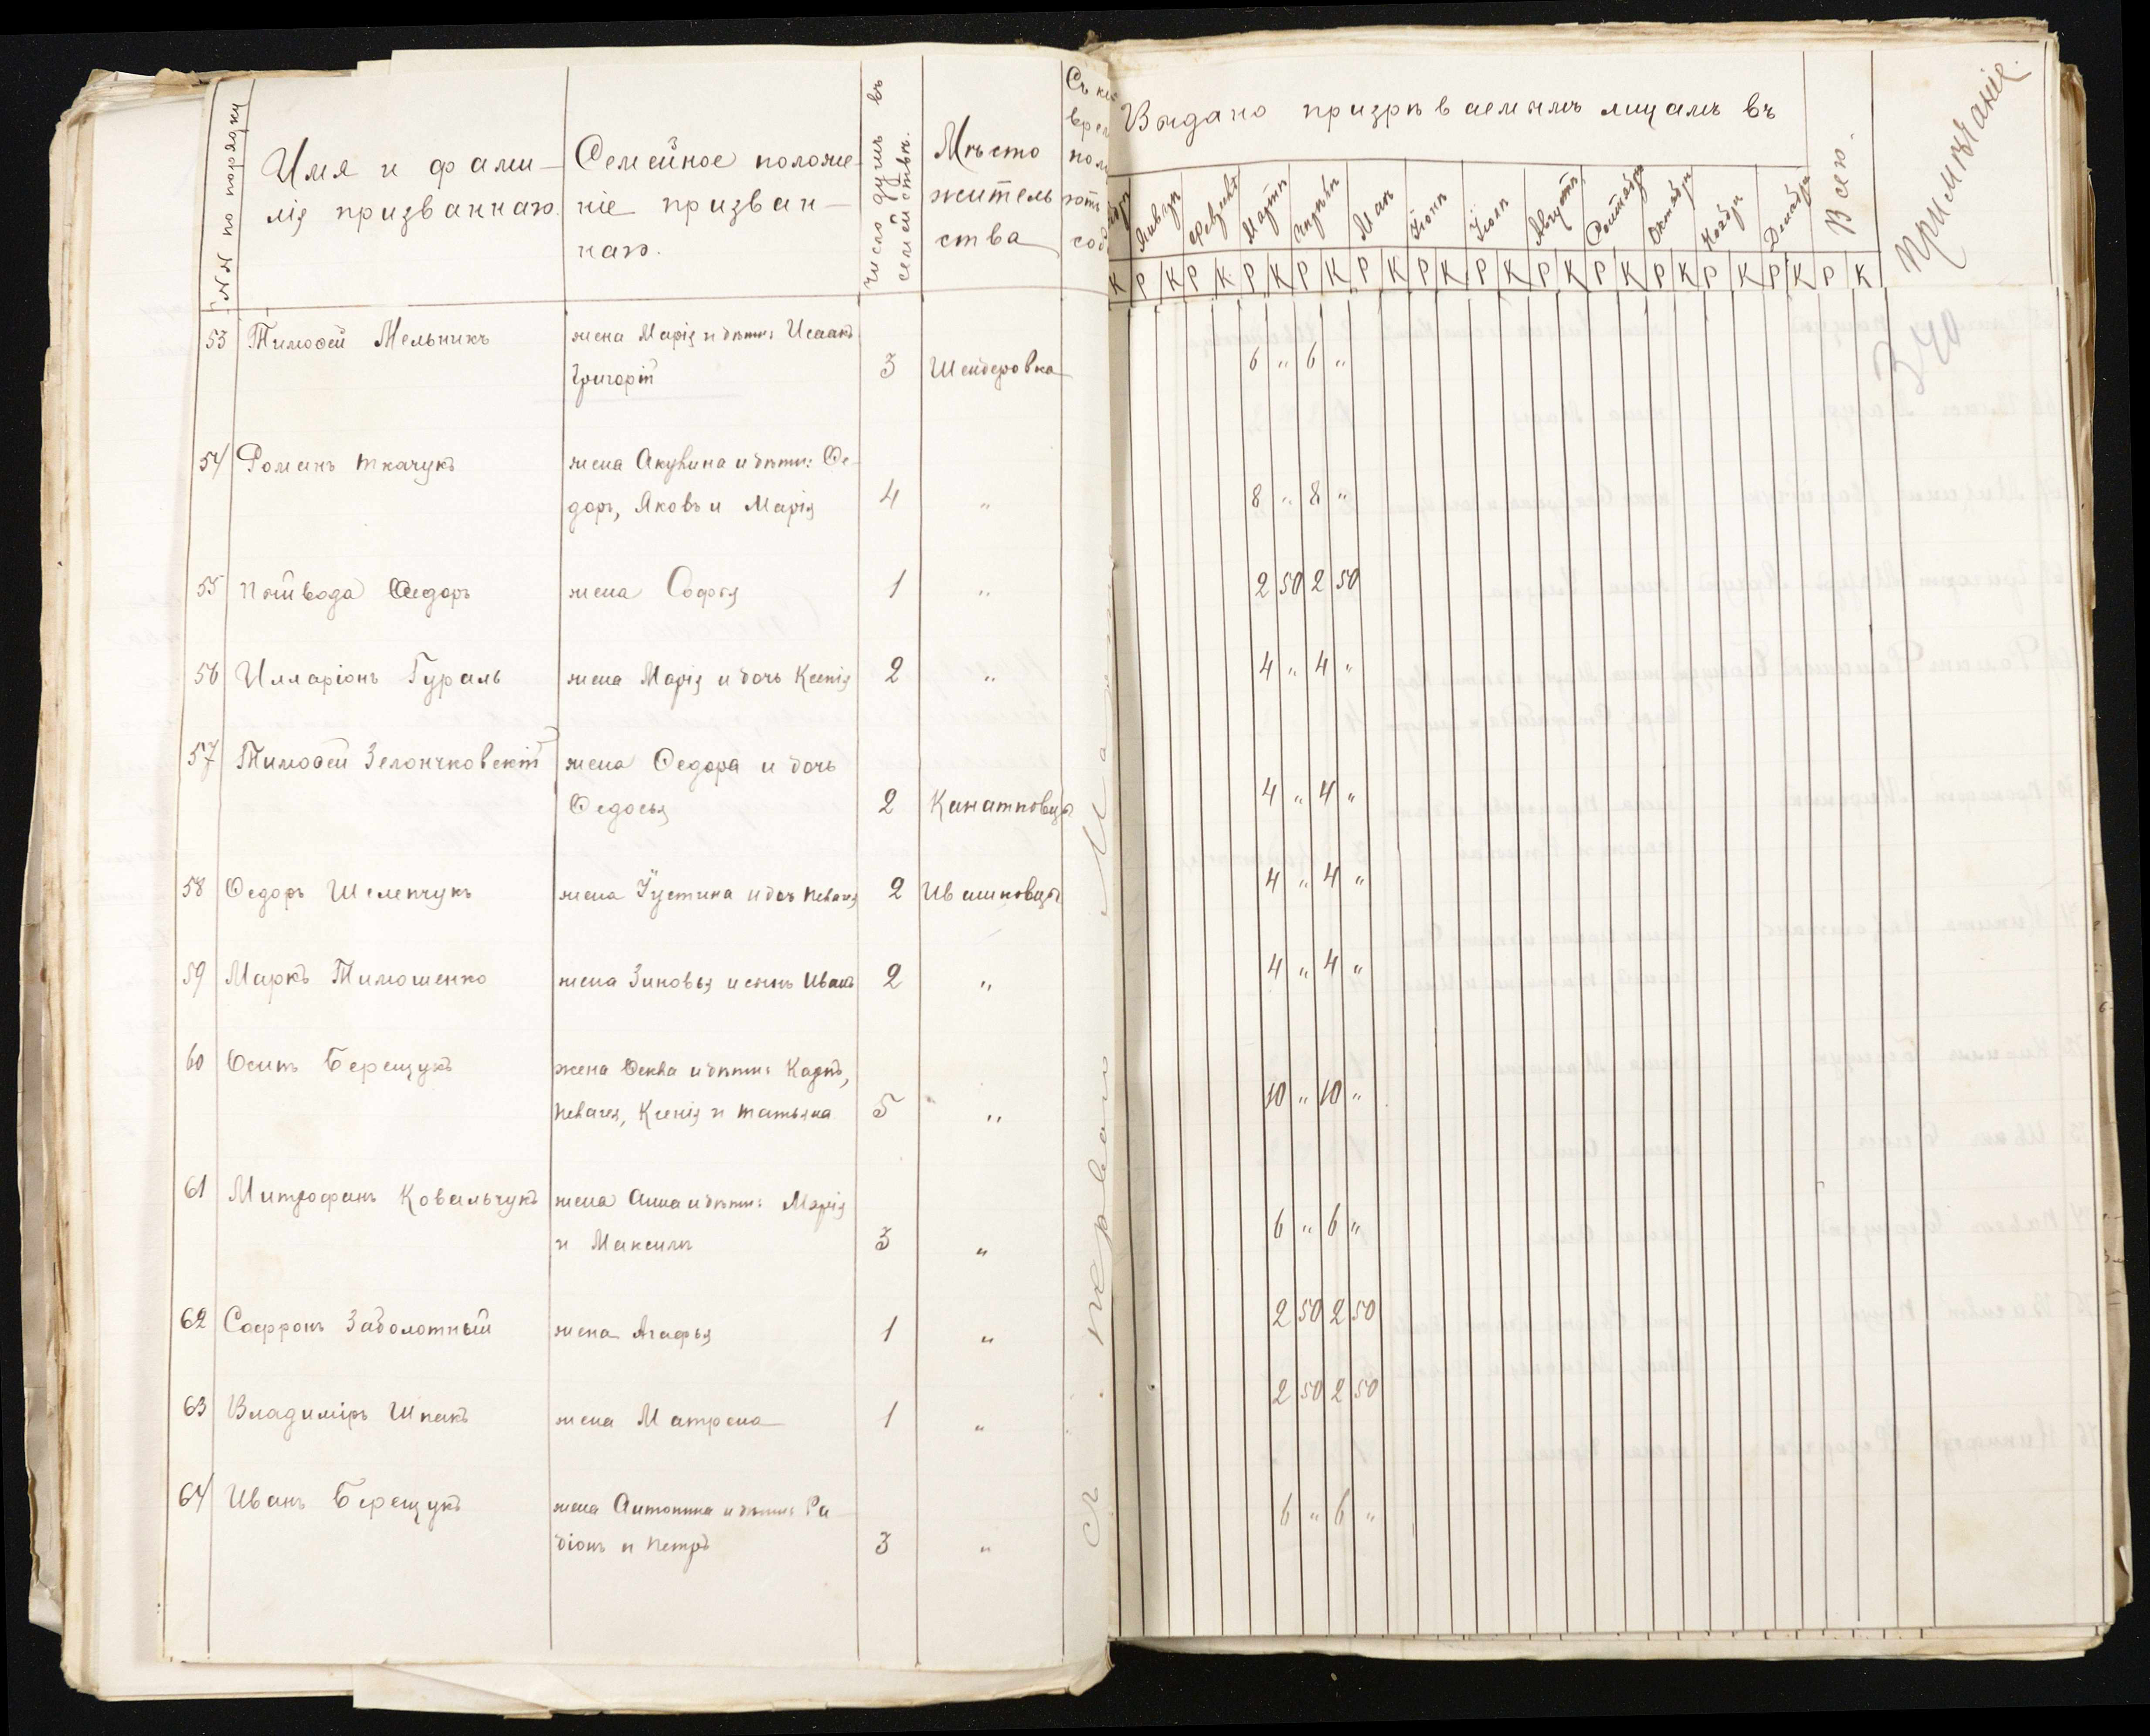 №№ по порядку
Имя и фами-
лія призваннаго.
Семейное положе-
ніе призван-
наго.
Число душъ въ
семействѣ.
Мѣсто
житель
ства
Съ
Выдано призрѣваемымъ лицамъ въ
Январѣ Февралѣ Мартѣ Апрѣлѣ Маѣ Іюнѣ Іюлѣ Августѣ Сентябрѣ Октябрѣ Ноябрѣ Декабрѣ
Всего.
Примѣчаніе.
К Р К Р К Р К Р К Р К Р К Р К Р К Р К Р К Р К Р К Р К
340
съ перваго Марта
53 Тимофей Мельникъ жена Марія и дѣти: Исаакъ
Григорій 3 Шейдеровка 6 „ 6 „
54 Романъ Ткачукъ жена Акувина и дѣти: Ѳе-
доръ, Яковъ и Марія 4 „ 8 „ 8 „
55 Ѳедоръ жена Софья 1 „ 2 50 2 50
56 Илларіонъ Гураль жена Марія и дочь Ксенія 2 „ 4 „ 4 „
57 Тимоѳей Зелончковскій жена Ѳедора и дочь
Ѳедосья 2 Канатковцы 4 „ 4 „
58 Ѳедоръ Шелепчукъ жена Іустина и доч 2 Ивашковцы 4 „ 4 „
59 Маркъ Тимошенко жена Зиновья и сынъ Иванъ 2 „ 4 „ 4 „
60 Осипъ Берещукъ жена и дѣти: Карпъ,
Ксенія и Татьяна 5 „ 10 „ 10 „
61 Митрофанъ Ковальчукъ жена Анна и дѣти: Марія
и Максимъ 3 „ 6 „ 6 „
62 Софронъ Заболотный жена Агафья 1 „ 2 50 2 50
63 Владиміръ Шпакъ жена Матрена 1 „ 2 50 2 50
64 Иванъ Берещукъ жена Антонина и дѣти: Ра-
діонъ и Петръ 3 „ 6 „ 6 „